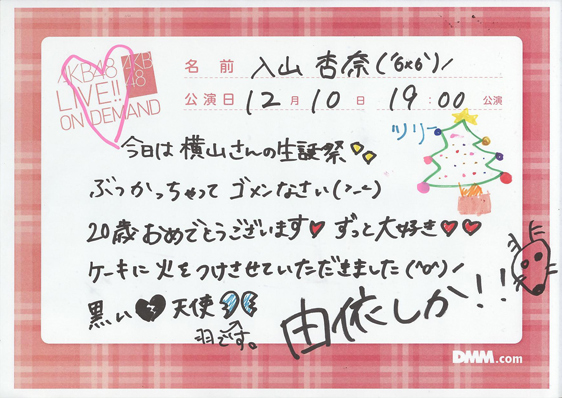 AKB48
LIVE!!
ON DEMAND
AKB
48
名前 入山 杏奈(´6x6`)ノ
公演日 12月10日 19:00公演
ツリー
今日は横山さんの生誕祭
ぶつかっちゃってゴメンなさい(>_<)
20歳おめでとうございます♥ずっと大好き♥♥
ケーキに火をつけさせていただきました(^o^)ノ
黒い天使
羽です。
由依しか!!
DMM.com